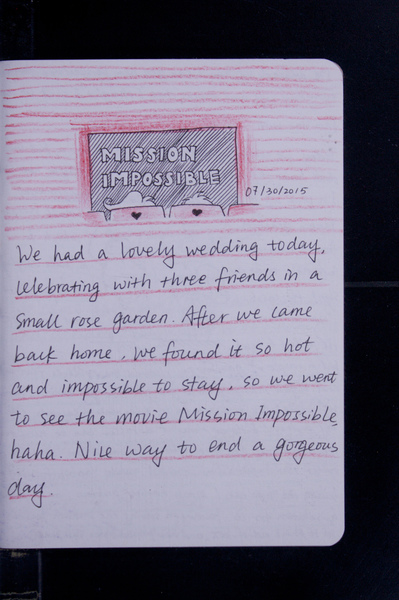 MISSION
IMPOSSIBLE
07/30/2015
We had a lovely wedding today,
celebrating with three friends in a
small rose garden. After we came
back home, we found it so hot
and impossible to stay, so we went
to see the movie Mission Impossible,
haha. Nice way to end a gorgeous
day.